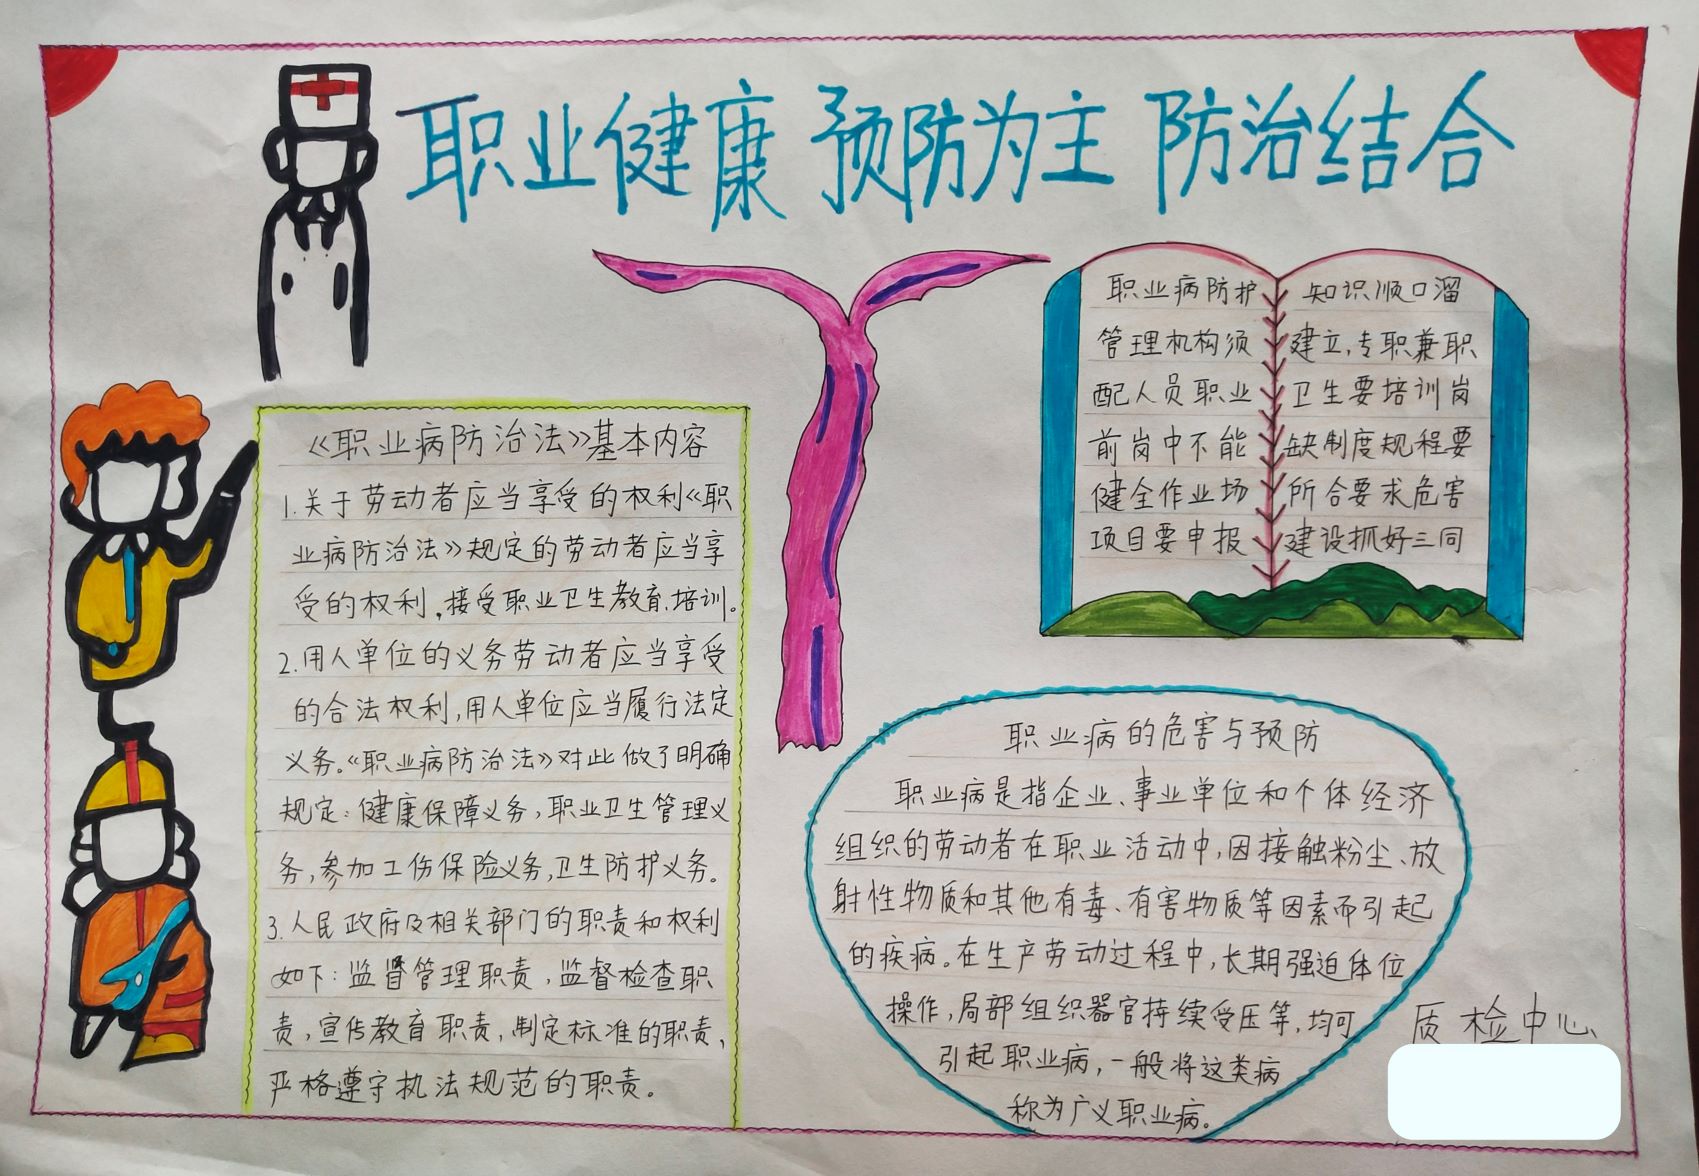 职业健康 预防为主 防治结合
《职业病防治法》基本内容
1.关于劳动者应当享受的权利《职
业病防治法》规定的劳动者应当享
受的权利,接受职业卫生教育、培训。
2.用人单位的义务劳动者应当享受
的合法权利,用人单位应当履行法定
义务。《职业病防治法》对此做了明确
规定:健康保障义务,职业卫生管理义
务,参加工伤保险义务,卫生防护义务。
3.人民政府及相关部门的职责和权利
如下:监督管理职责,监督检查职
责,宣传教育职责,制定标准的职责,
严格遵守执法规范的职责。
职业病防护 知识顺口溜
管理机构须 建立,专职兼职
配人员职业 卫生要培训岗
前岗中不能 缺制度规程要
健全作业场 所合要求危害
项目要申报 建设抓好三同
职业病的危害与预防
职业病是指企业、事业单位和个体经济
组织的劳动者在职业活动中,因接触粉尘、放
射性物质和其他有毒、有害物质等因素而引起
的疾病。在生产劳动过程中,长期强迫体位
操作,局部组织器官持续受压等,均可
引起职业病,一般将这类病
称为广义职业病。
质检中心